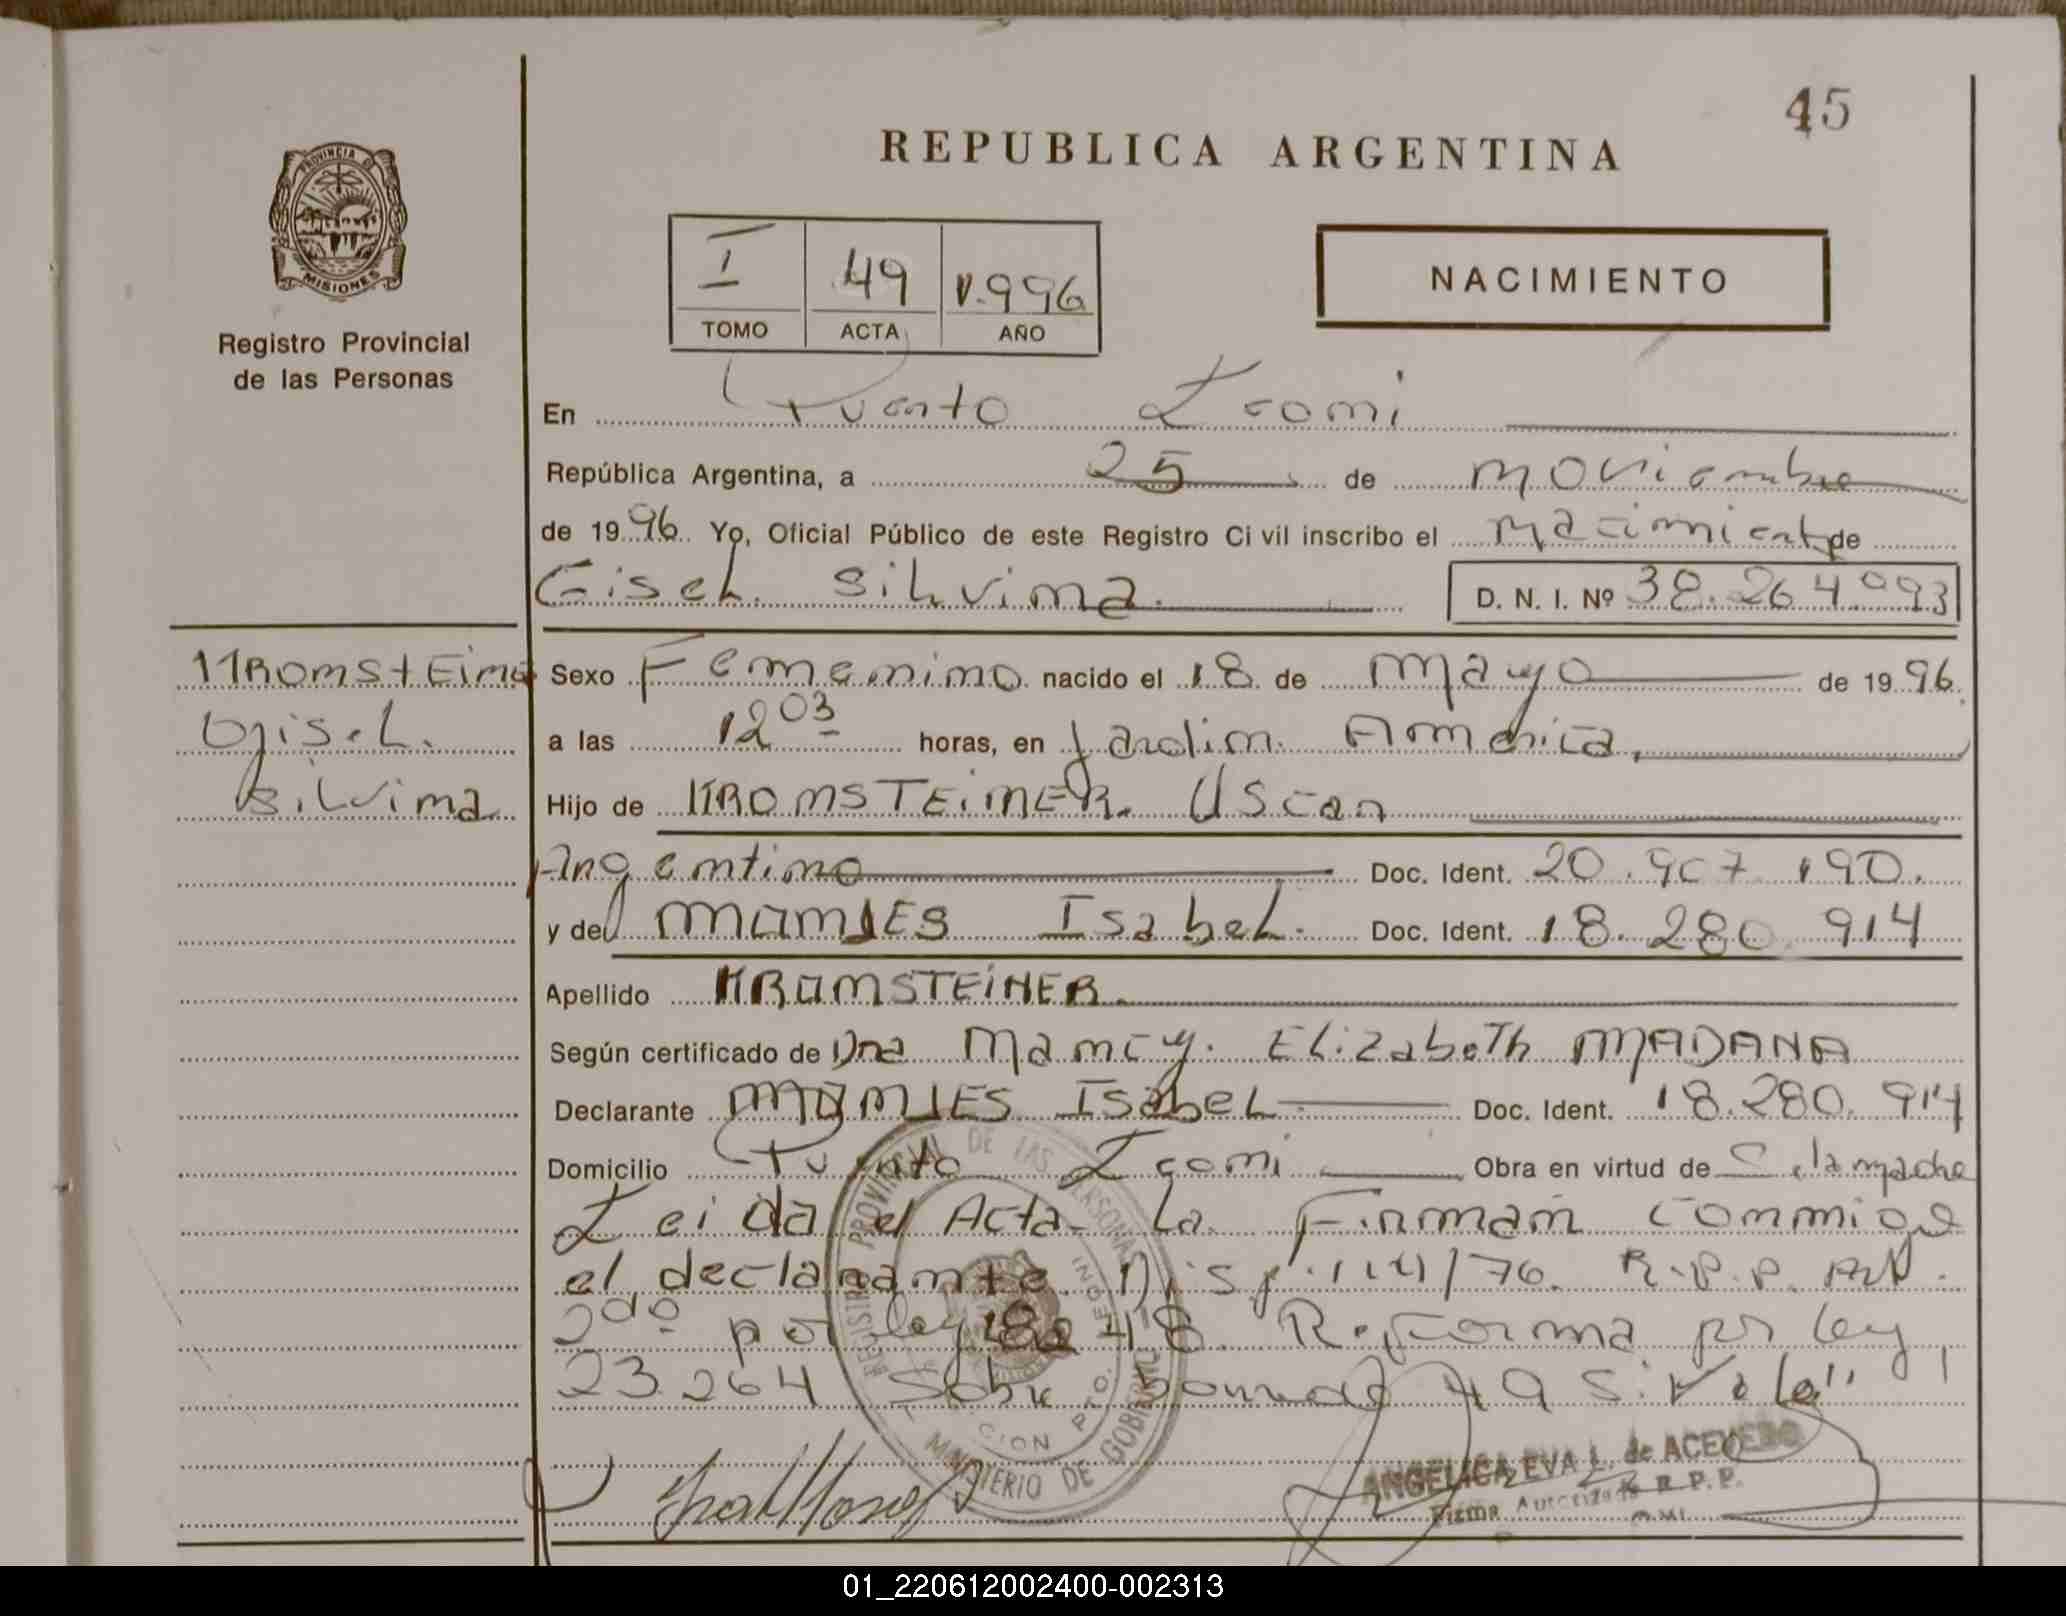 45
REPUBLICA ARGENTINA
PROVINCIA DE
MISIONES
Registro Provincial
de las Personas
I 49 1.996
TOMO ACTA AÑO
NACIMIENTO
En Puerto Leoni
República Argentina, a 25 de noviembre
de 19 96 Yo, Oficial Público de este Registro Ci vil inscribo el nacimiento de
Gisel Silvina D. N. I. Nº 38.264.993
KRONSTEINER
Gisel
Silvina
Sexo Femenino nacido el 18 de mayo de 19 96
a las 12 03 horas, en Jardin America
Hijo de KRONSTEINER Oscar
Argentino Doc. Ident. 20.907.190.
y de Isabel Doc. Ident. 18.280.914
Apellido KRONSTEINER
Según certificado de Dra Nancy Elizabeth MADANA
Declarante Isabel Doc. Ident. 18.280.914
Domicilio Puerto Leoni Obra en virtud de la madre
Leida el Acta La Firman conmigo
el declarante Disp. /76. R.P.P. Art
2do por ley 18248 Reforma por ley
23.264 Sobre 49 Si Vale"
REGISTRO PROVINCIAL DE LAS PERSONAS
MINISTERIO DE GOBIERNO
ANGELICA EVA L. de ACEVEDO
Firma Autorizada R.P.P.
01_220612002400-002313